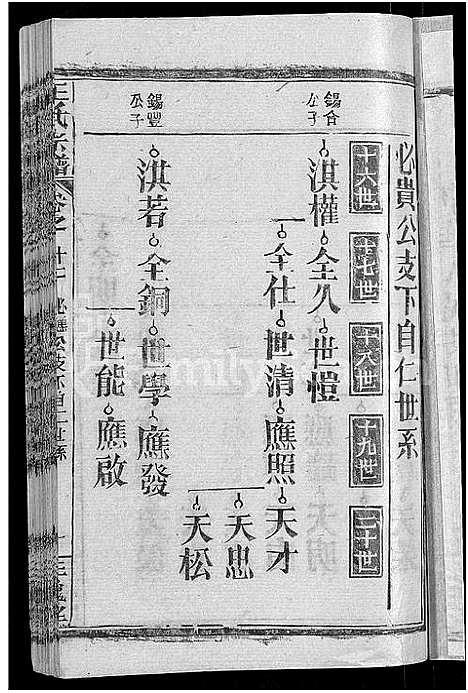 必貴公支下自仁世系
十六世
十七世
十八世
十九世
二十世
錫合公子
淇權 全久 世愷
全仕 世清 應照 天才
天忠
天松
錫豐公子
淇若 全銅 世學 應發
世能 應啟
王氏宗譜